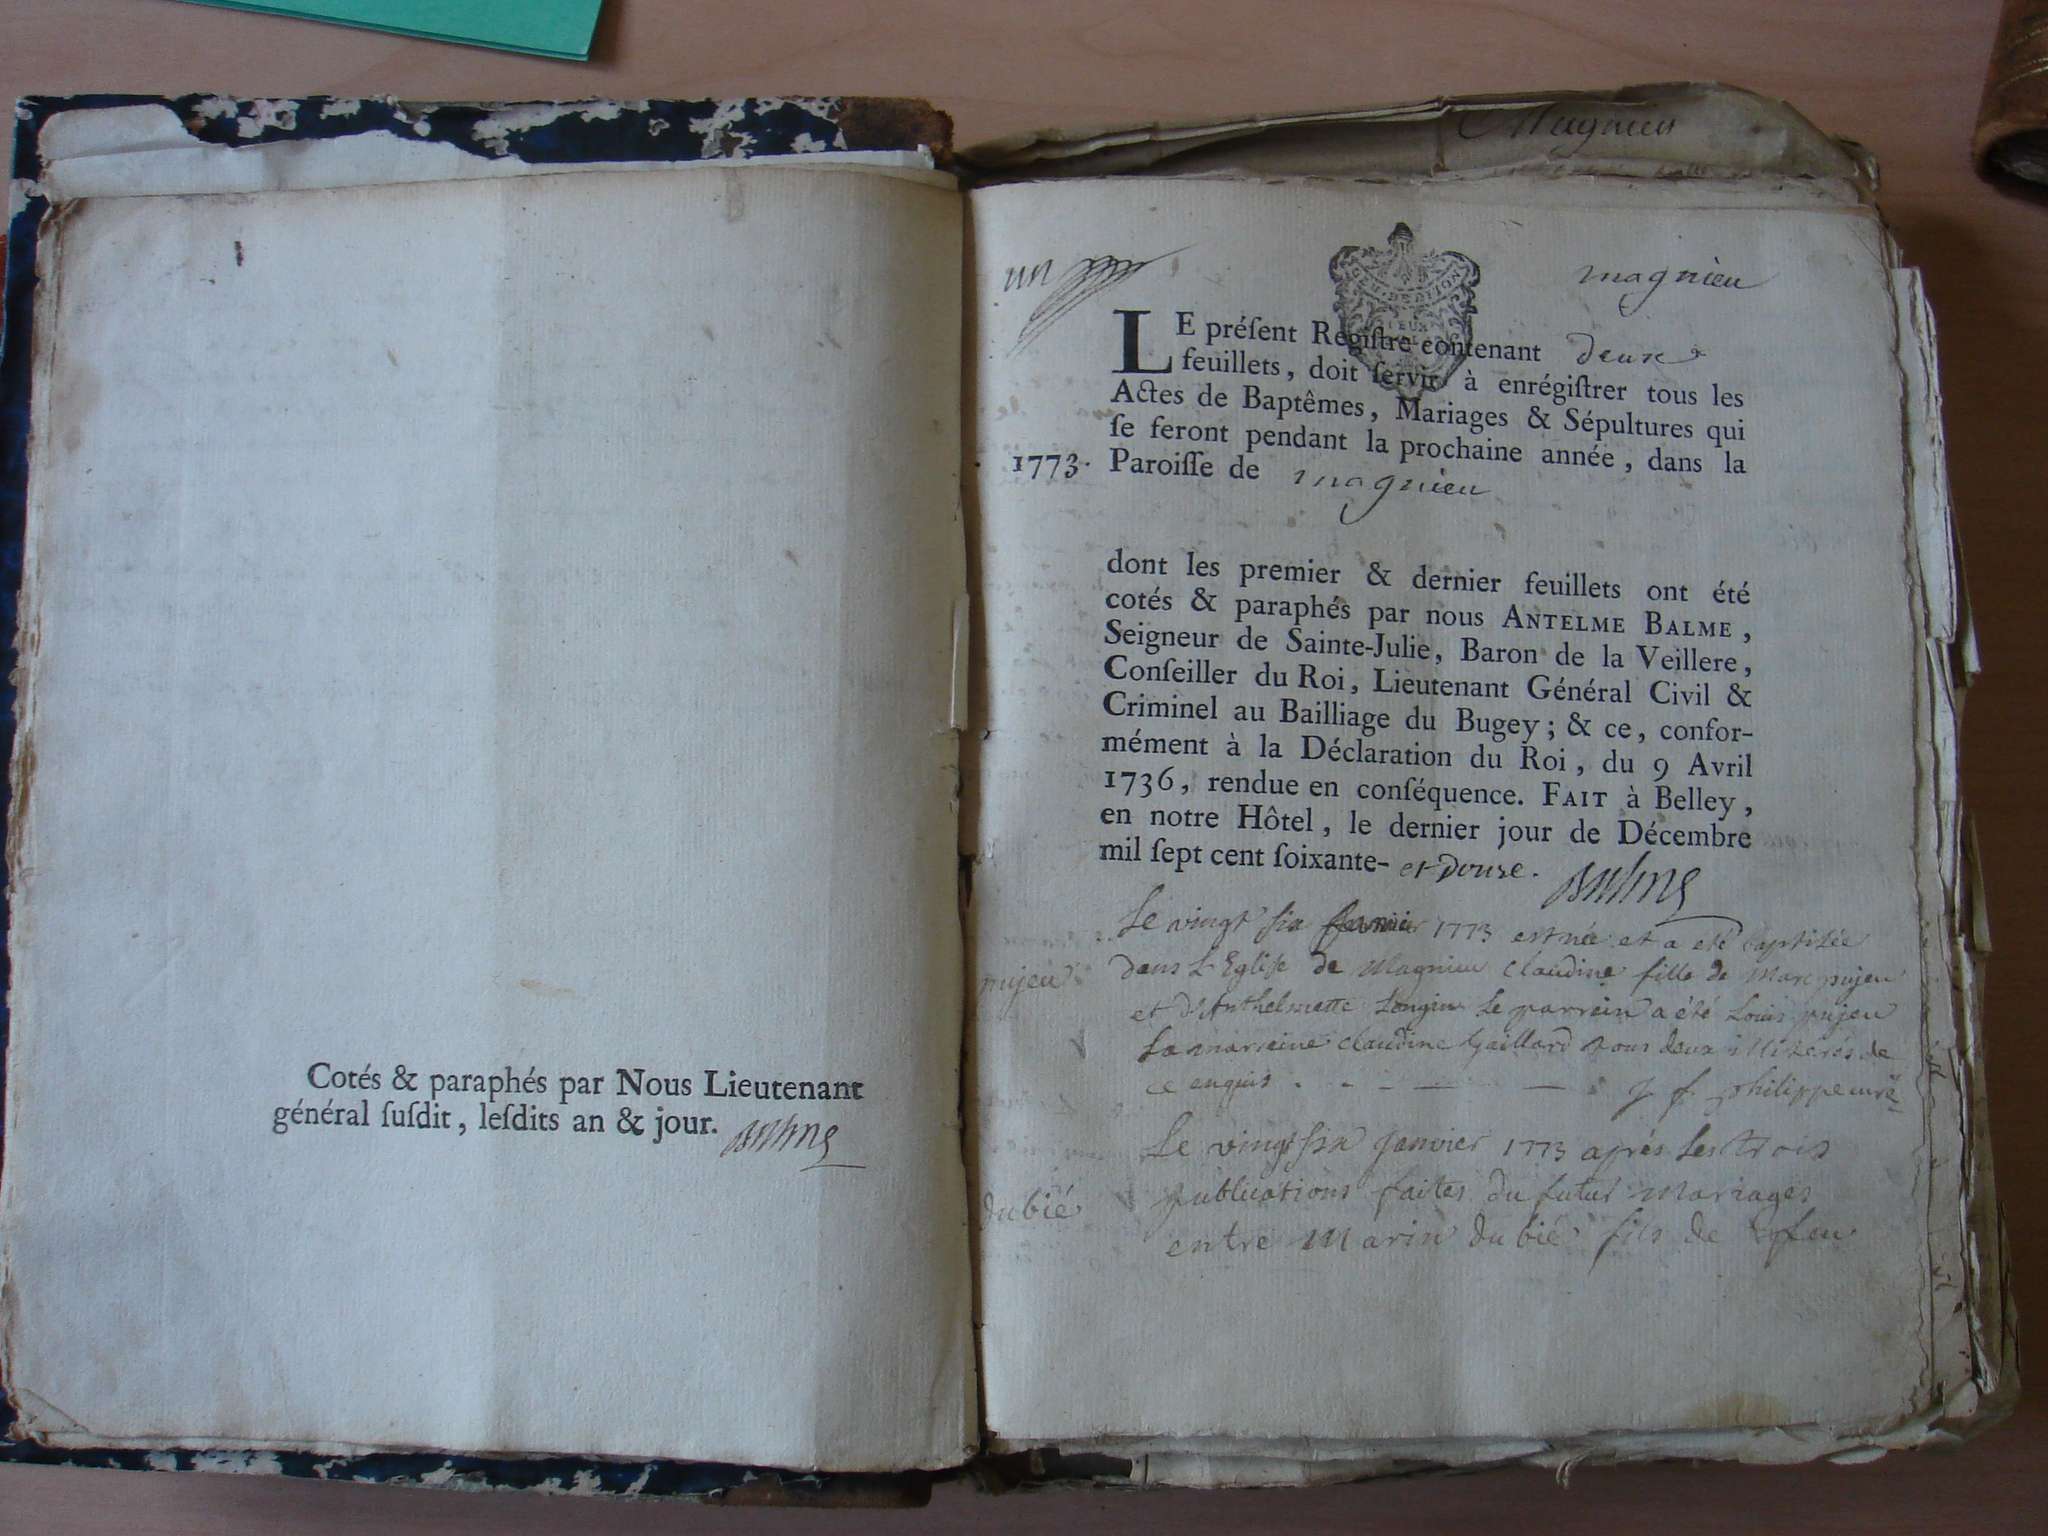 Cotés & paraphés par Nous Lieutenant
général ſuſdit, leſdits an & jour.
Magnieu
un
magnieu
LE préſent Regiſtre contenant deux
feuillets, doit ſervir à enrégiſtrer tous les
Actes de Baptêmes, Mariages & Sépultures qui
ſe feront pendant la prochaine année, dans la
1773. Paroiſſe de magnieu
dont les premier & dernier feuillets ont été
cotés & paraphés par nous ANTELME BALME,
Seigneur de Sainte-Julie, Baron de la Veillere,
Conſeiller du Roi, Lieutenant Général Civil &
Criminel au Bailliage du Bugey; & ce, confor-
mément à la Déclaration du Roi, du 9 Avril
1736, rendue en conſéquence. FAIT à Belley,
en notre Hôtel, le dernier jour de Décembre
mil ſept cent ſoixante- et douze.
Le vingt six 1773 est née et a été baptisée
pujeu dans L'Eglise de Magnieu Claudine fille de Marc pujeu
et d'Anthelmette Longin Le parrein a été Louis pujeu
La marreine Claudine Gaillard tous deux illiterés de
ce enquis. j f. philippe curé
Le vingt six janvier 1773 aprés Les trois
dubié publications faites du futur Mariages
entre Marin dubié fils de feu